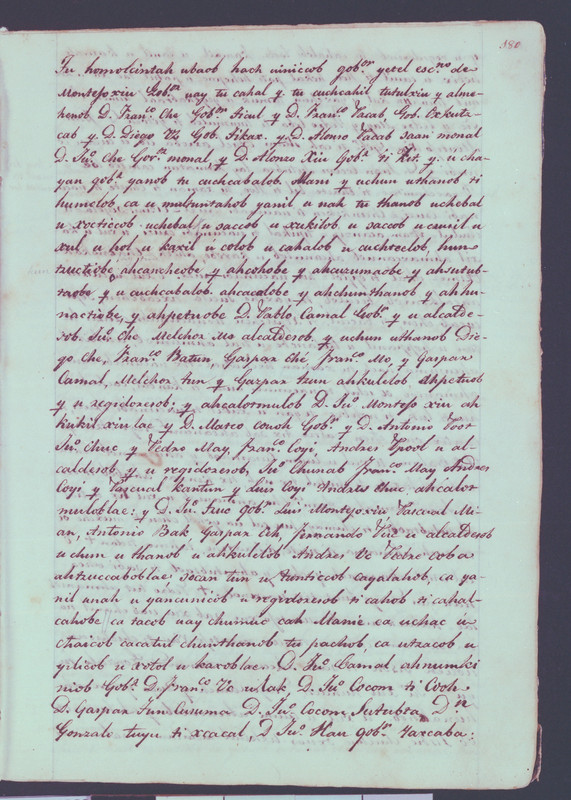 180
Tu homolcintah ubaob hach uinicob gob.or yetel esc.no de
Montejo xiu Gob.or uay tu cahal y tu cuchcahil tutulxiu y alme-
henob D. Fran.co Che Gob.or Ticul y D. Fran.co Pacab, Gob. Oxkutz-
cab y D. Diego Vs Gob. Tikax. y D. Alonso Pacab Jaan monal
D. Ju.o Che Gov.or monal, y D. Alonzo Xiu Gob.r ti Tet. y. u cha-
yan gob.r yanob tu cuchcabalob Mani y uchun uthanob ti
humelob, ca u multuntahob yanil u nah tu thanob uchebal
u xocticob uchebal u saccob u xukilob u saccob u cuuil u
xul u hol u kaxil u colob u cahalob u cuchteelob, hun-
tzuctiobe ahcancheobe y ahcohobe y ahcuzumaobe y ahsutub-
taobe y u cuchcabalob. ahcacalobe y ahchunthanob y ahhu-
nactiobe, y ahpetuobe D. Pablo Camal Gob.r y u alcalde-
sob. Ju.o Che, Melchor Mo alcaldesob. y uchun uthanob Die-
go Che, Fran.co Batun Gaspar Ché, Fran.co Mo, y Gaspar
Camal, Melchor tun y Gazpar tzun ahkulelob Ahpetuob
y u regidoresob; y ahcalotmulob D. Ju.o Montejo xiu ah
kukil xiu lae y D. Mateo couoh Gob.r y D. Antonio Poot
Ju.o Chuc y Pedro May, Fran.co Coyi, Andres Tpool u al-
caldesob y u regidoresob, Ju.o Chumab Fran.co May Andres
Coyi y Pascual Kantun y Luis Coyi Andres chuc, ahcalot
muloblae: y D. Ju.o Tzuc Gob.r Luis Montejo xiu Pascual Mi-
an, Antonio Bak Gaspar Ceh, Fernando Tuz u alcaldesob
uchum u thanob u ahkulelob Andres Vc Pedro coba
ahtzuccaboblae; docan tun u tzunticcob cayalahob, ca ya-
nil unah u yancunicob u regidoresob ti cahob ti cahal-
cahobe ca tacob uay chumuc cah Manie, ca uchac u-
chaicob cacatul chunthanob tu pachob, ca utzacob u
ppilicob u xotol u kaxoblae. D. Ju.o Camal, ahnumki-
niob Gob.r D. Fran.co Vc u lak, D. Ju.o Cocom ti Cooh.
D. Gaspar Tun Cusuma D. Ju.o Cocom, Sutubta, D.n
Gonzalo tuyu ti xcacal, D Ju.o Hau gob.r Yaxcaba: